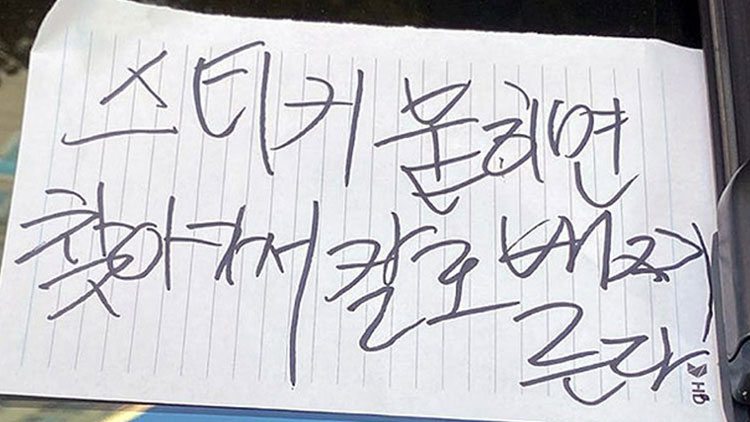 스티커 붙히면
찾아가서 칼로 배찌
른다
HB